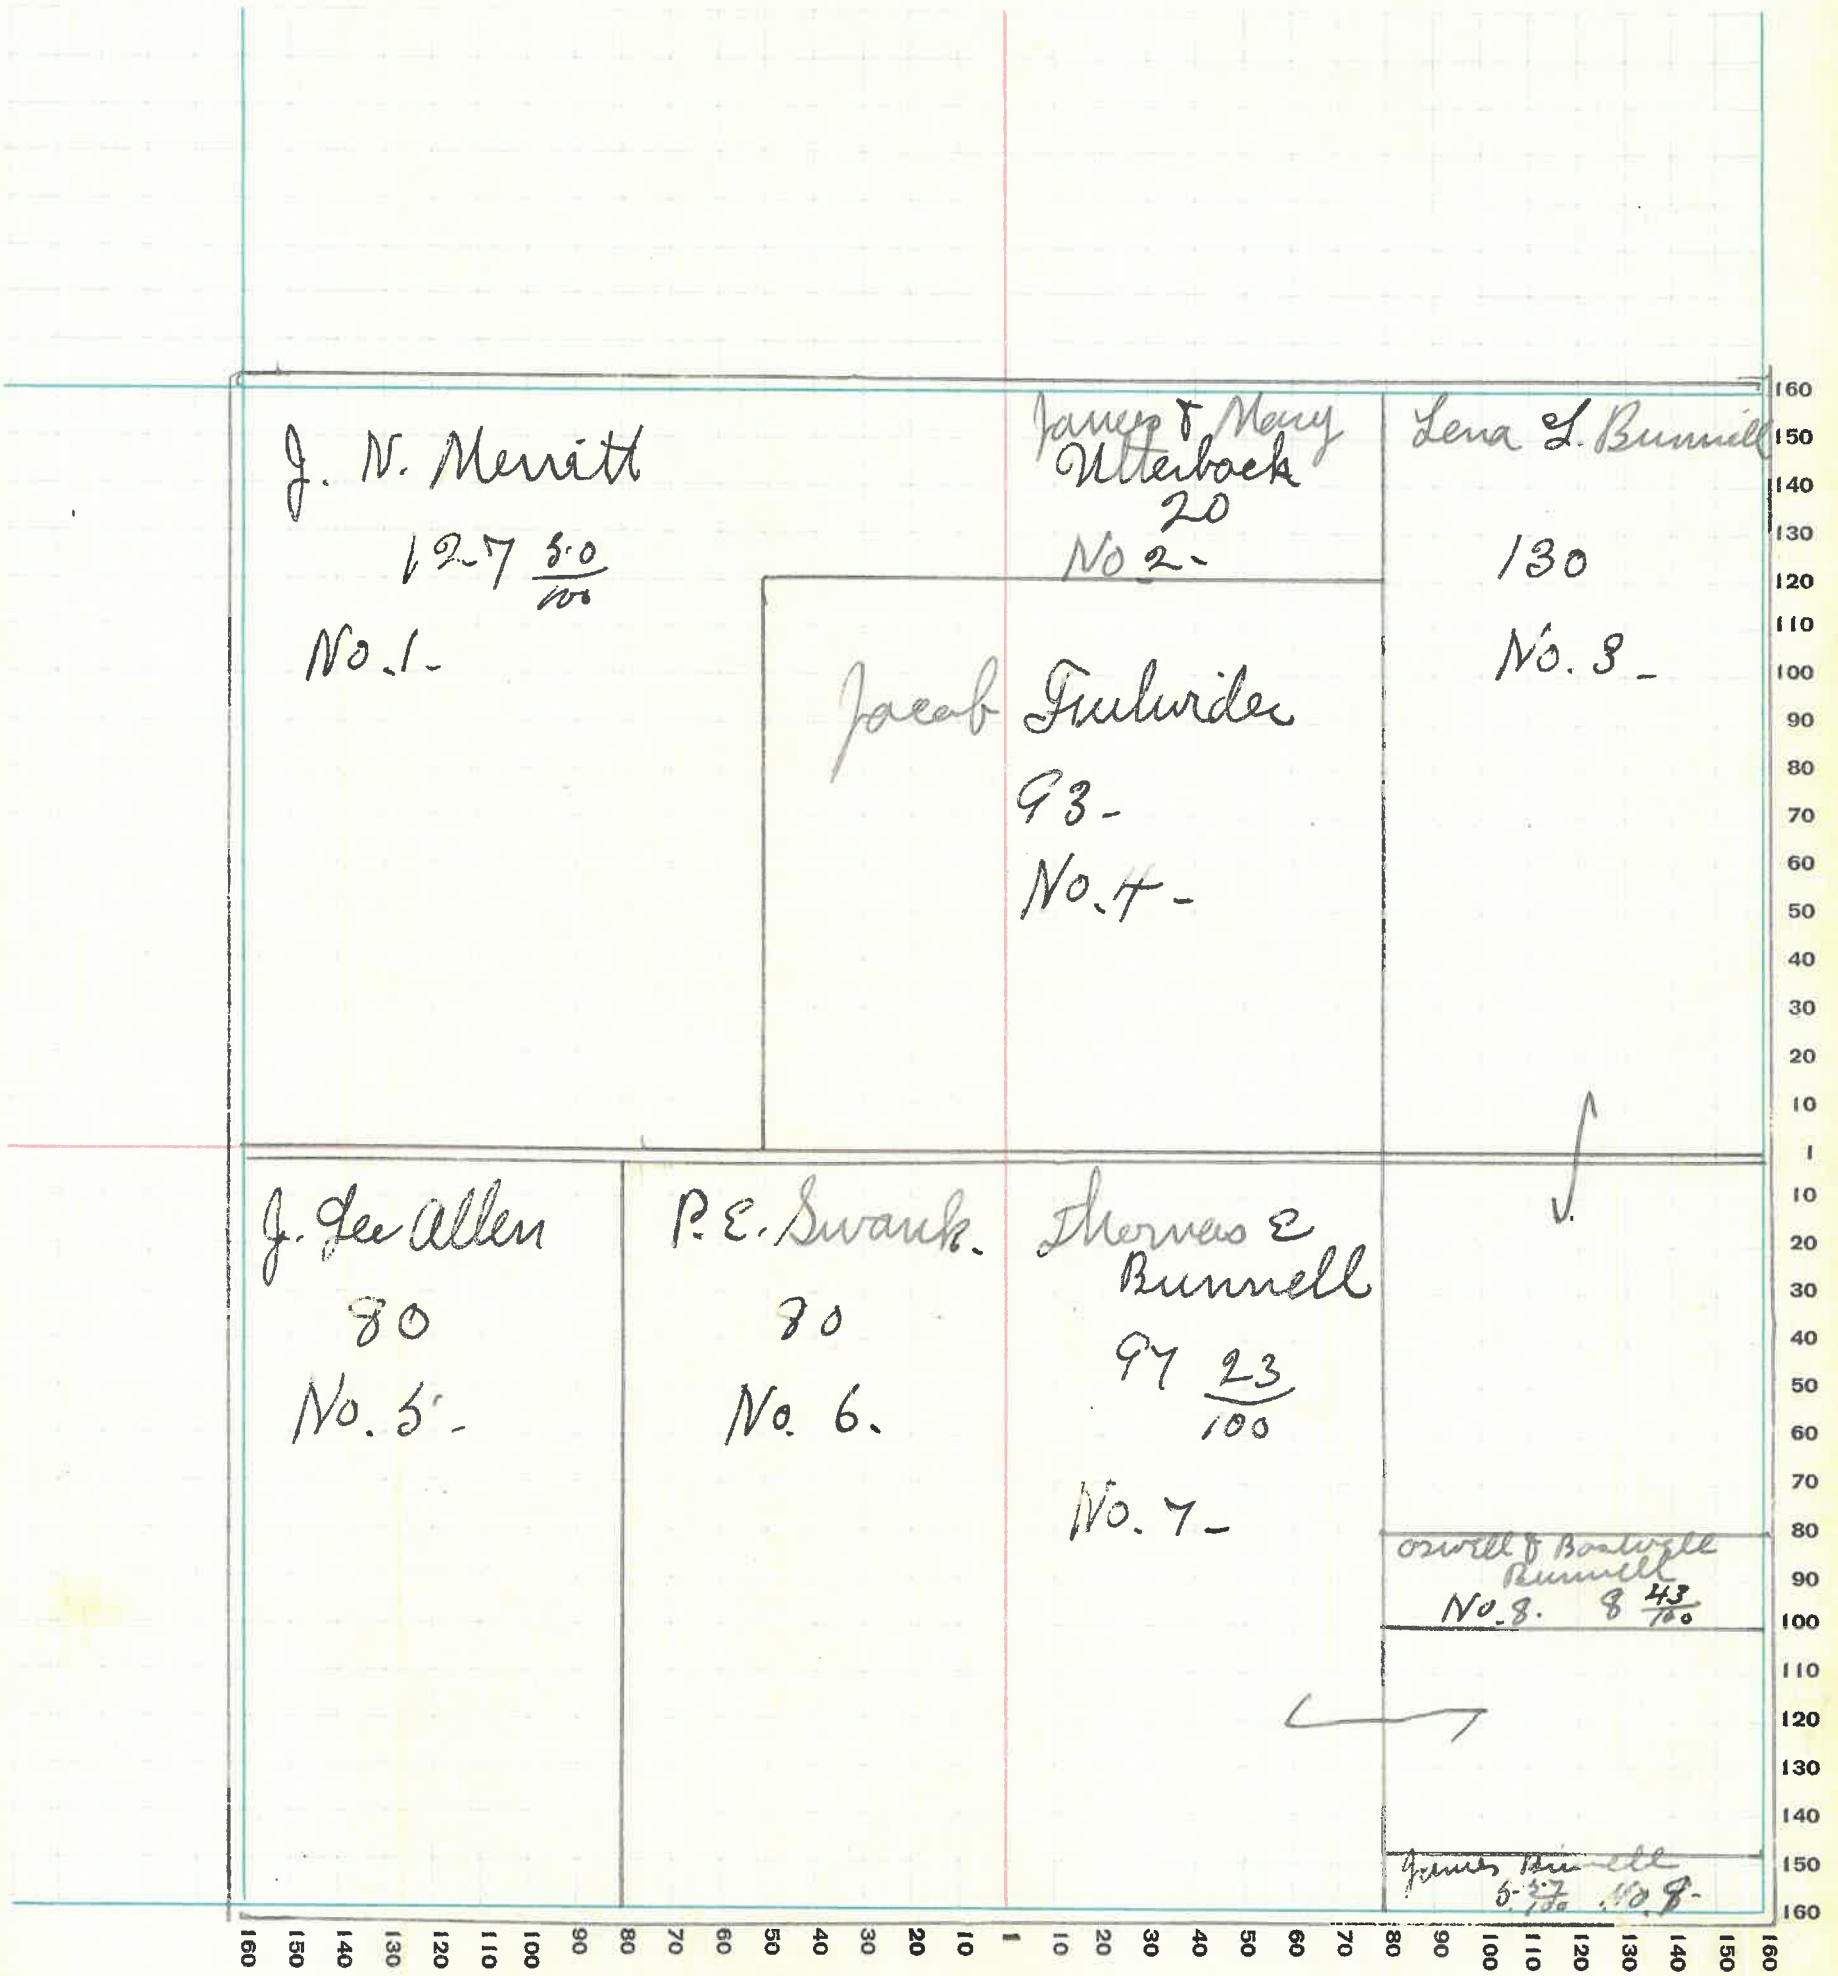 J. N. Merritt
127 50/100
No. 1-
James & Mary
Utterback
20
No 2-
Lena L. Bunnell
130
No. 3-
Jacob Fulwider
93-
No. 4-
J. Lee Allen
80
No. 5-
P. E. Swank.
80
No. 6.
Thomas E
Bunnell
97 23/100
No. 7-
Bunnell
No. 8. 8 43/100
James Bunnell
160
150
140
130
120
110
100
90
80
70
60
50
40
30
20
10
1
10
20
30
40
50
60
70
80
90
100
110
120
130
140
150
160
160 150 140 130 120 110 100 90 80 70 60 50 40 30 20 10 1 10 20 30 40 50 60 70 80 90 100 110 120 130 140 150 160